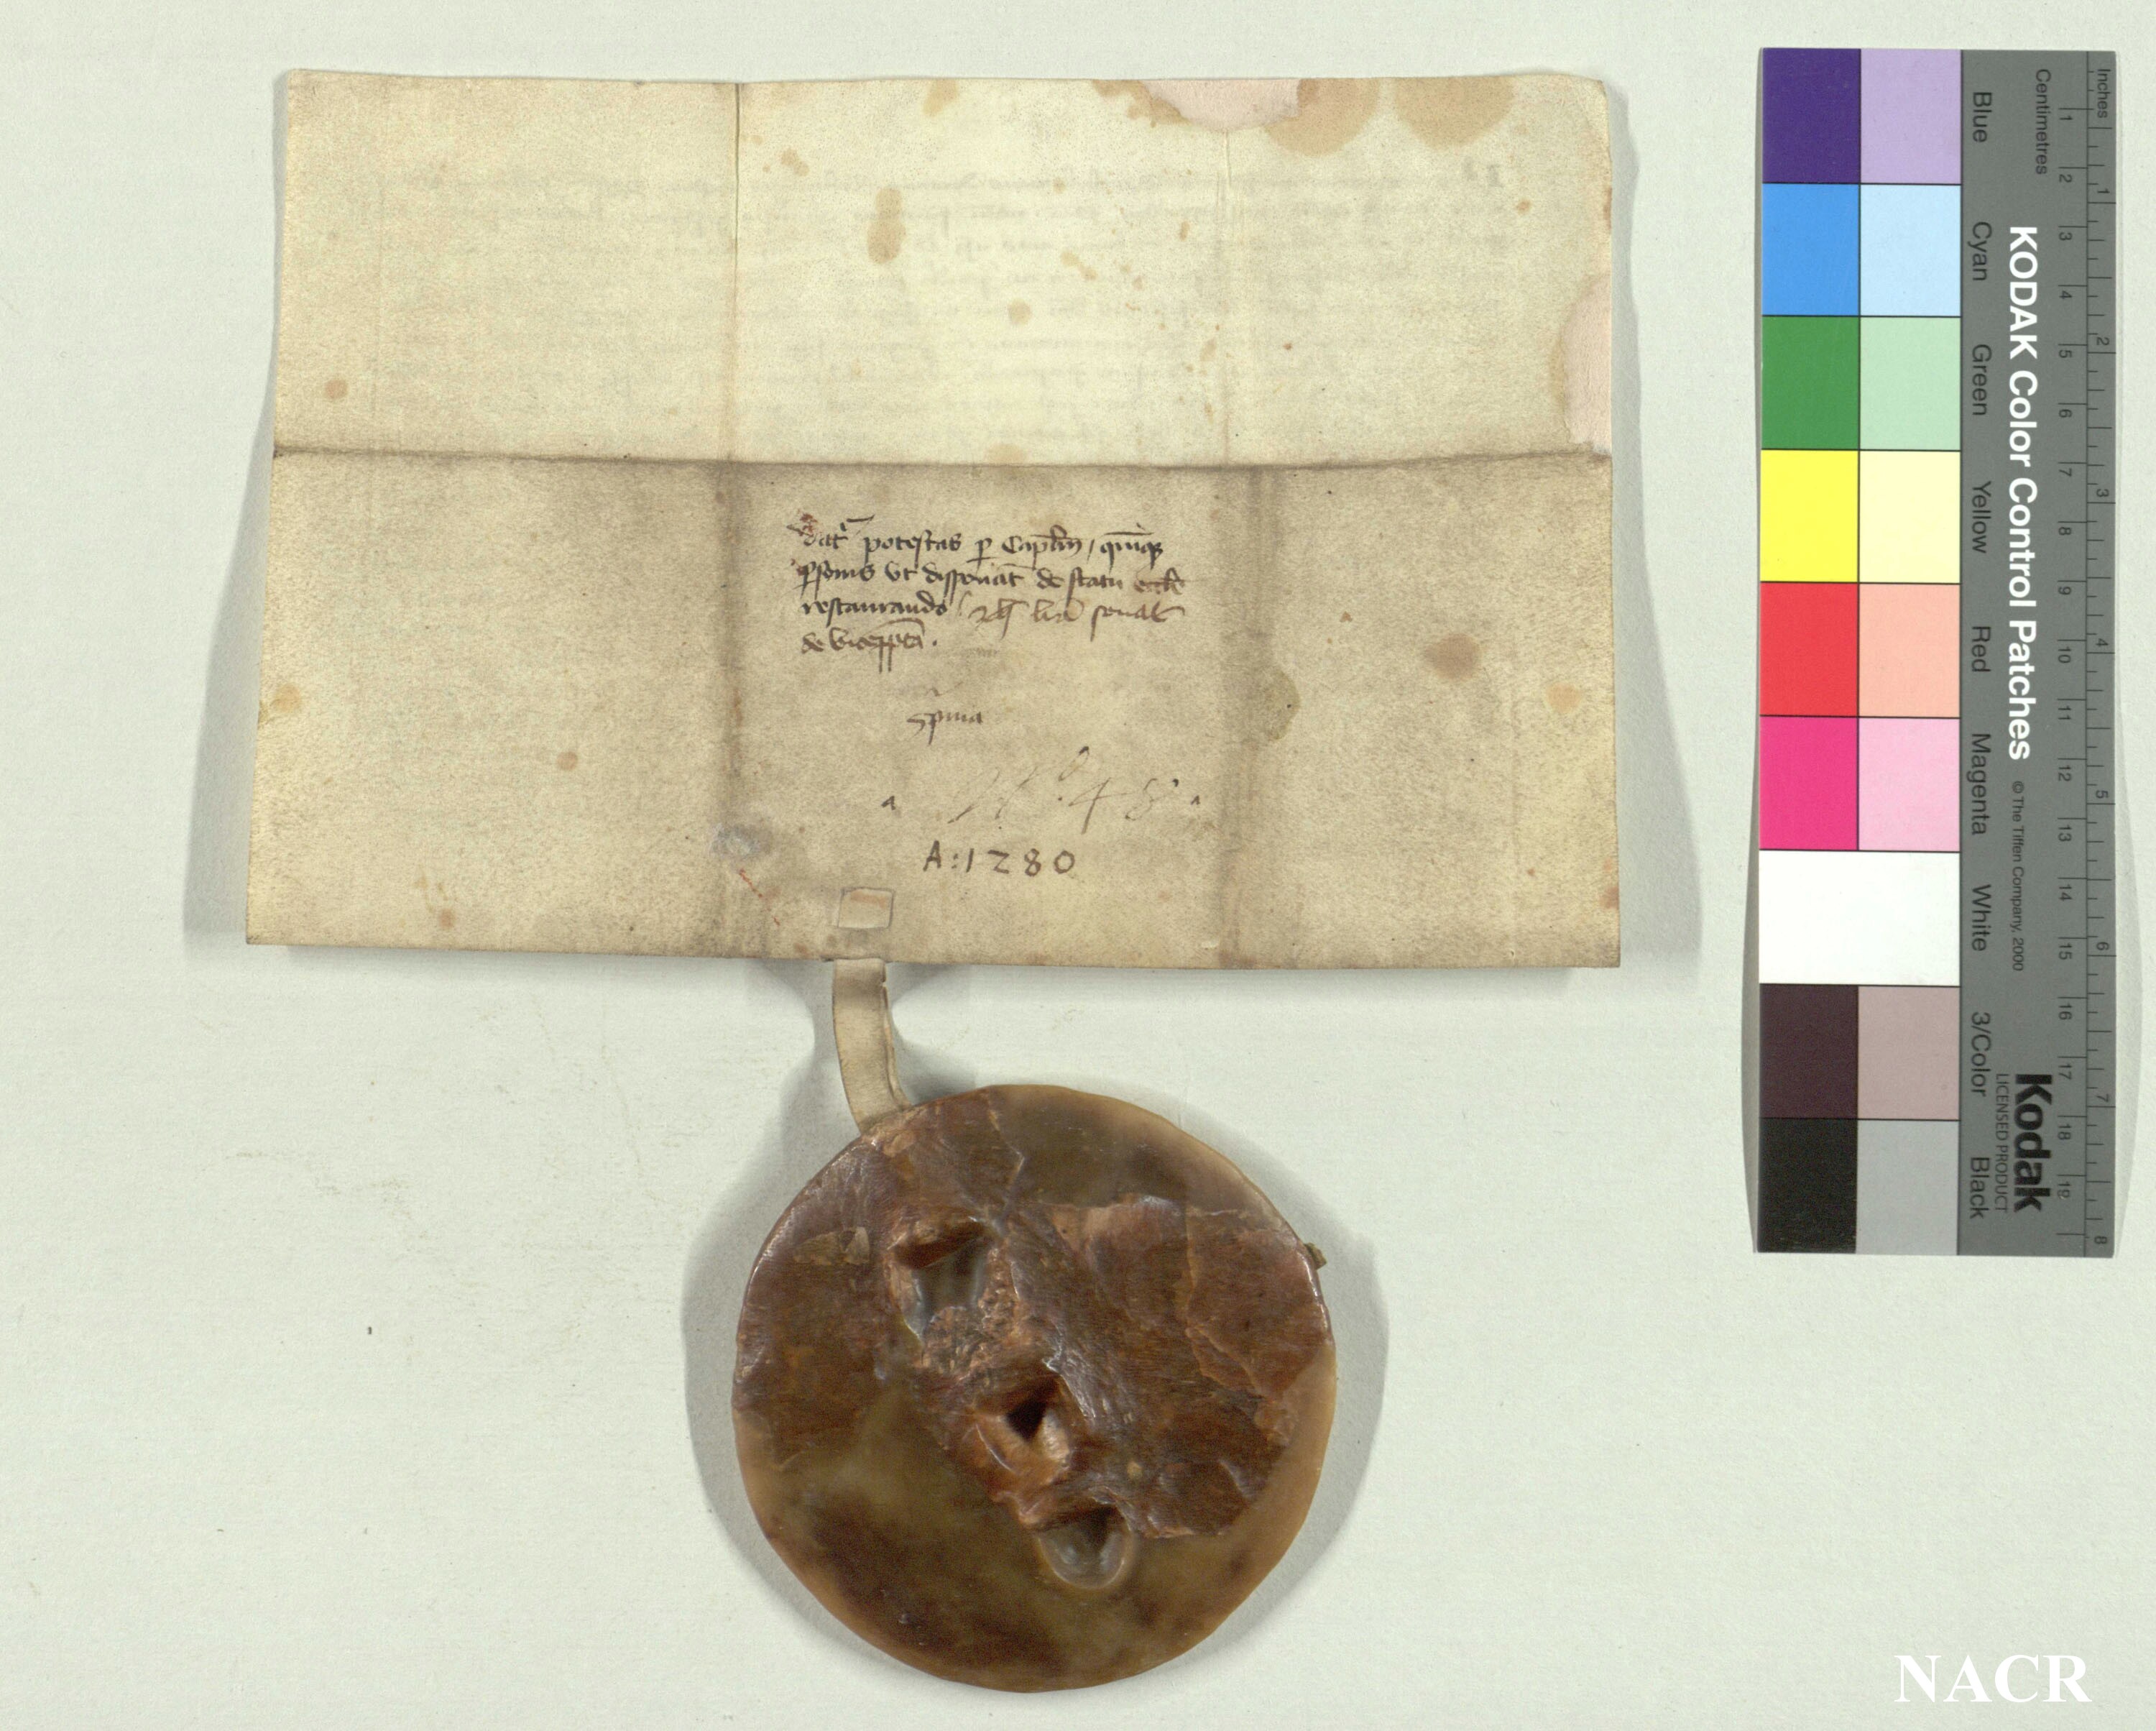 Datr potestas p Caplm / quinqȝ
psonis vt disponāt de statu eccle
restaurando
de viceppta .
No. 48.
A:1280
KODAK Color Control Patches
© The Tiffen Company, 2000
Kodak
LICENSED PRODUCT
Inches
1 2 3 4 5 6 7 8
Centimetres
1 2 3 4 5 6 7 8 9 10 11 12 13 14 15 16 17 18 19
Blue
Cyan
Green
Yellow
Red
Magenta
White
3/Color
Black
NACR